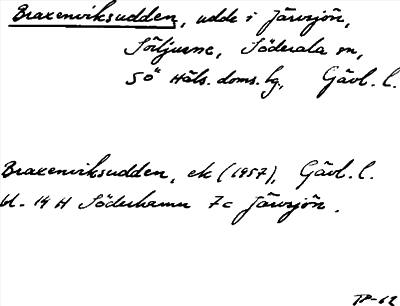 Braxenviksudden, udde i Järvsjön,
Söljusne, Söderala sn,
SÖ Häls. doms. lg, Gävl. l.
Braxenviksudden, ek (1957), Gävl. l.
bl. 14 H Söderhamn 7c Järvsjön.
TP-62